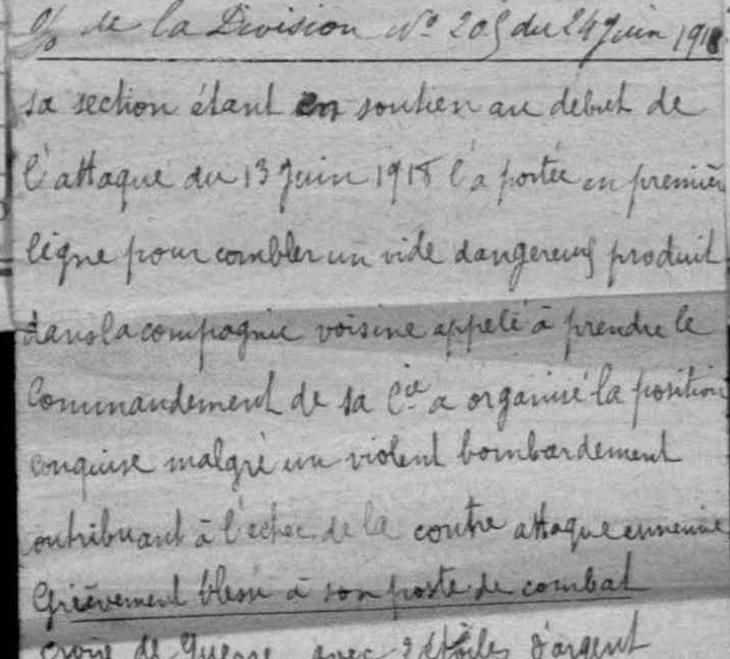 % de la Division N° 205 du 24 Juin 1918
sa section étant en soutien au debut de
l'attaque du 13 Juin 1918 l'a portée en premièr
ligne pour combler un vide dangereux produit
dans la compagnie voisine appelé à prendre le
Commandement de sa Cie a organisé la position
conquise malgré un violent bombardement
ontribuant à l'echec de la contre attaque ennemie
Grièvement blessé à son poste de combat
Croix de Guerre avec 2 étoiles d'argent